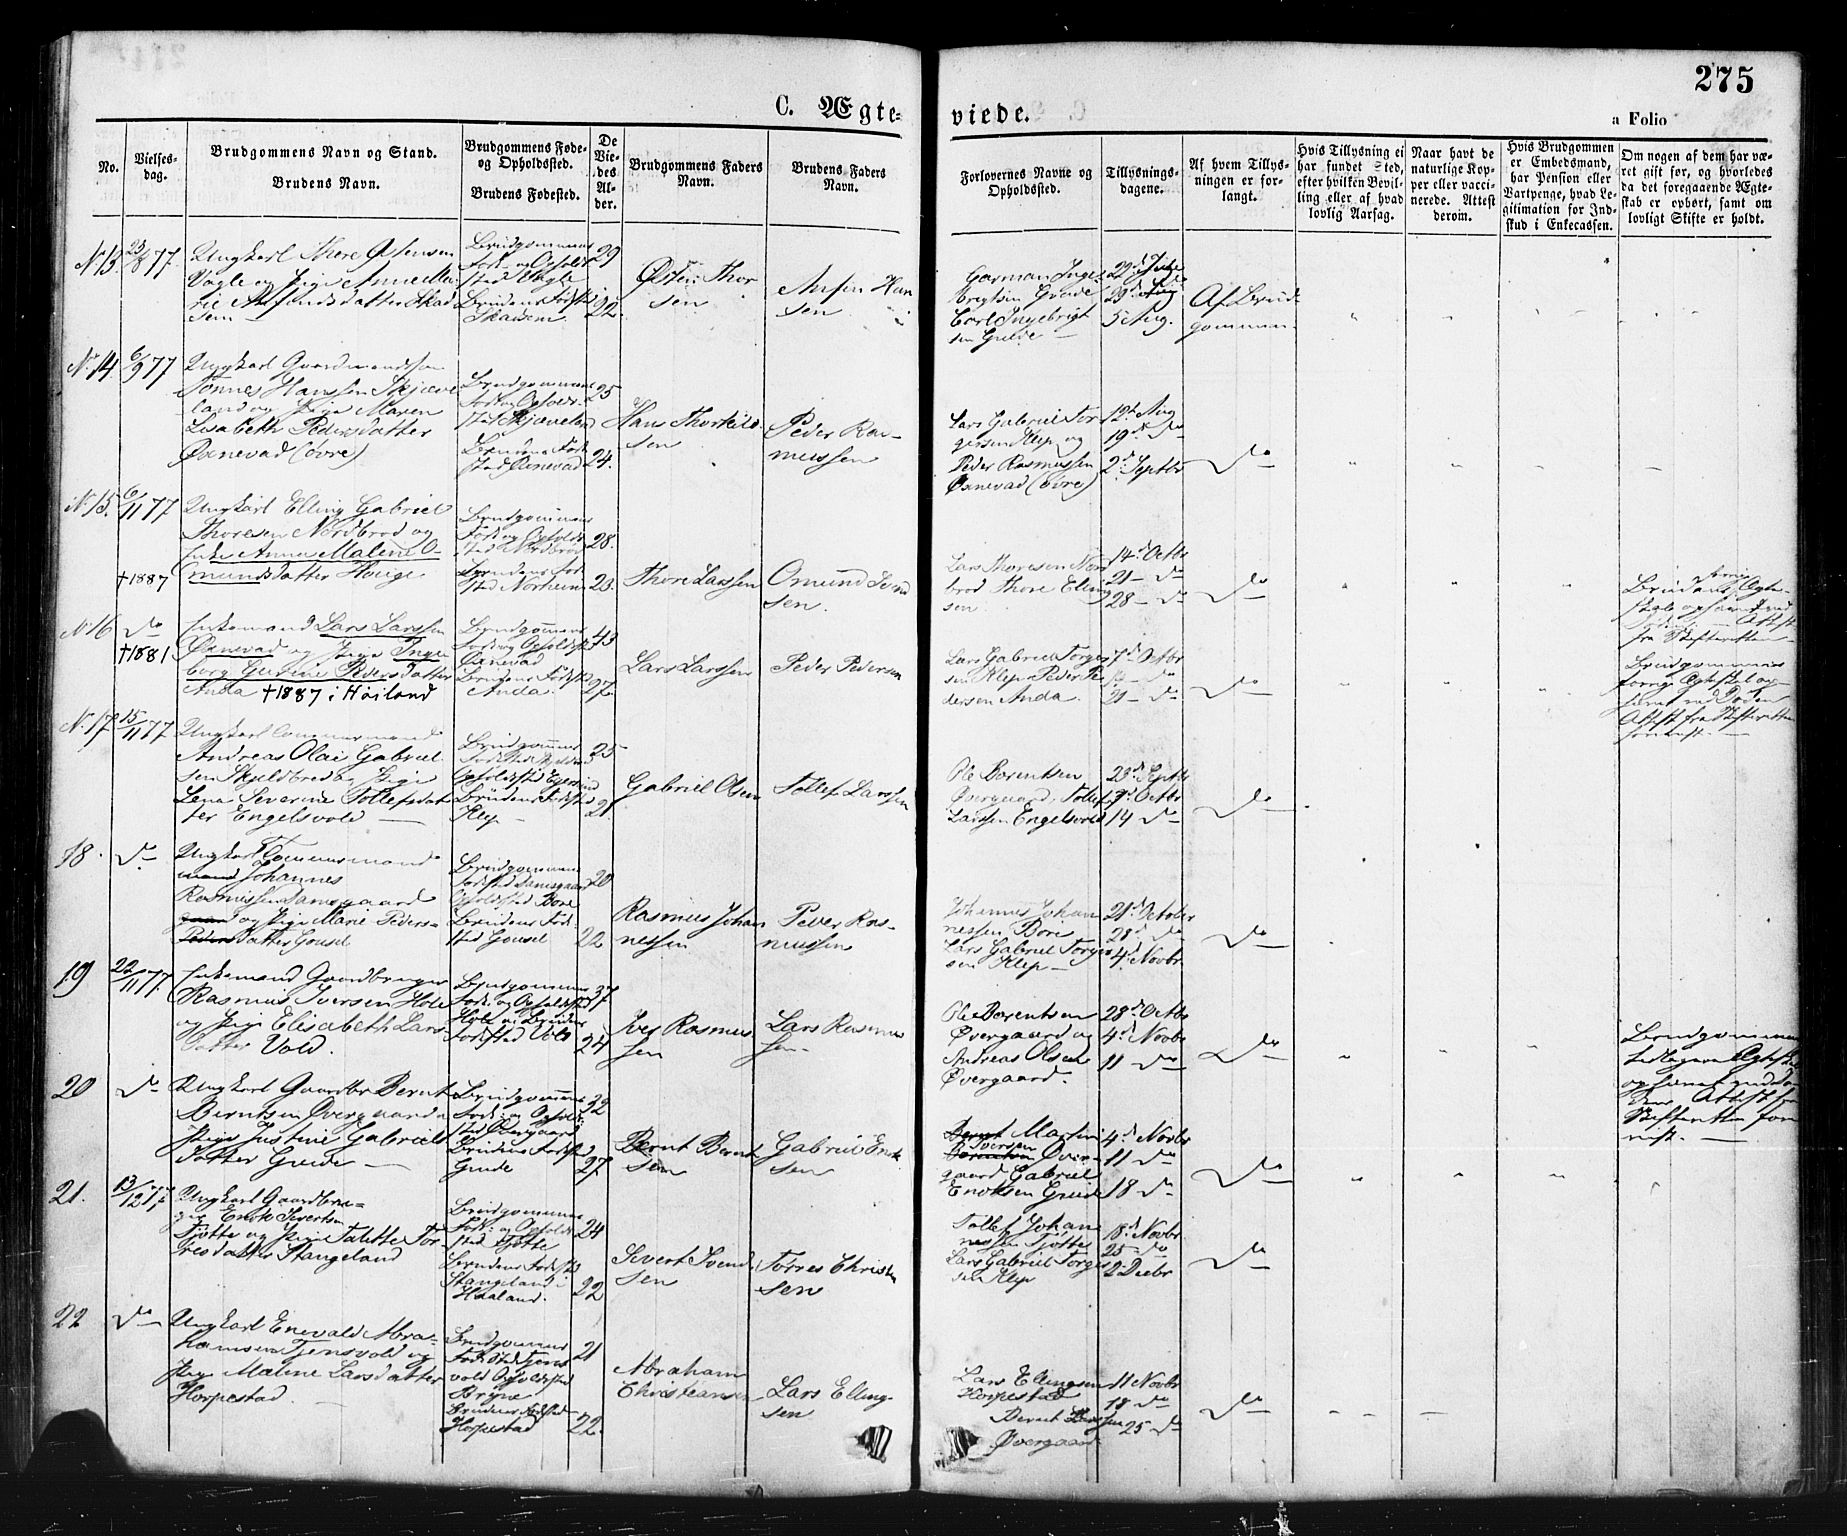 275
C. Ægte-
viede.
a Folio
No.
Vielses-
dag.
Brudgommens Navn og Stand.
Brudens Navn.
Brudgommens Føde-
og Opholdssted.
Brudens Fødested.
De
Vie-
des
Al-
der.
Brudgommens Faders
Navn.
Brudens Faders
Navn.
Forlovernes Navne og
Opholdssted.
Tillysnings-
dagene.
Af hvem Tillys-
ningen er for-
langt.
Hvis Tillysning ei
har fundet Sted,
efter hvilken Bevil-
ling eller af hvad
lovlig Aarsag.
Naar havt de
naturlige Kop-
per eller vacci-
nerede. Attest
derom.
Hvis Brudgommen
er Embedsmand,
har Pension eller
Vartpenge, hvad Le-
gitimation for Ind-
skud i Enkecassen.
Om nogen af dem har væ-
ret gift før, og hvorledes
da det foregaaende Ægte-
skab er ophørt, samt om
lovligt Skifte er holdt.
No 13
23/8 77.
Ungkarl Thore Østensen
Vogle og Pige Anne Ma-
rie Skad-
sem
Brudgommens
Føde- og Opholds-
sted Vogle
Brudens Fødested
Skadsem.
29
22.
Østen Thor
sen
Han
sen
Garman Inge-
Grude
Carl Ingebrigt
sen Grude
29d
5 Aug.
Af Brud-
gommen
No 14
6/9 77
Ungkarl Gaardmandssøn
Tønnes Hanssen Skjæve
land og Pige Maren
Lisabeth Pedersdatter
Øxnevad (øvre)
Brudgommens
Føde og Opholds-
sted Skjæveland
Brudens Føde
sted Øxnevad
25
24.
Hans Thorkild
sen
Peder Ras-
mussen
Lars Gabriel Tor
gersen Klep og
Peder Rasmussen
Øxnevad (øvre)
12d Aug
19d Do
2d Septbr
Do
No 15.
6/11 77
Ungkarl Elling Gabriel
Thoresen Nordbrod og
Enke Anna Malene O-
mundsdatter Houge
†1887
Brudgommens
Føde og Opholds
sted Nordbrod
Brudens Føde
sted Norheim
28.
23.
Thore Larssen
Omund Svend
sen.
Lars Thoresen Nord
brod Thore Elling
sen
14d Octbr
21 Do
28 Do
Do
Brudens forrige Ægte-
skab ophævet ved
Døden. Attest
fra Skifteretten
No 16
Do
†1881
Enkemand Lars Larssen
Øxnevad og Pige Inge
borg Gurine Pedersdatter
Anda †1887 i Høiland
Brudgommens
Føde og Opholdssted
Øxnevad
Brudens Fødested
Anda.
43
27.
Lars Larssen
Peder Pedersen
Lars Gabriel Torger
sen Klep Peder Pe
dersen Anda
7d Octbr
14 Do
21 Do
Do
Brudgommens
forrige Ægteskab op-
hævet ved Døden
Attest fra Skifteretten
forevist.
No 17
15/11 77
Ungkarl Tømmermand
Andreas Olai Gabriel-
sen Skjeldbred og Pige
Lena Severine Tollefsdat
ter Engelsvold
Brudgommens
Opholdssted Egersund
Brudens Fødested
Klep
25
21.
Gabriel Olsen
Tollef Larssen
Ole Berentsen
Øvergaard, Tollef
Larssen Engelsvold
23d Septbr
7d Octbr
14 Do
Do
18.
Do
Ungkarl Tømmermand
mand Johannes
Rasmussen Damsgaard
gaard og Pige Marie Peders-
Pedersdatter Gousel
Brudgommens
Fødested Damsgaard
Opholdssted Bore
Brudens Føde
sted Gousel
20
22
Rasmus Johan
nessen
Peder Ras-
mussen
Johannes Johan
nessen Bore
Lars Gabriel Torger
sen Klep
21d October
28d Do
4d Novbr
Do
19
22/11 77
Enkemand Gaardbruger
Rasmus Iversen Hole
og Pige Elisabeth Lars-
datter Vold.
Brudgommens
Føde og Opholdssted
Hole og Brudens
Fødested Vold
37
24
Iver Rasmus
sen
Lars Rasmus
sen
Ole Berentsen
Øvergaard og
Andreas Olsen
Øvergaard.
28d Octbr
4d Novbr
11 Do
Do
Brudgommens
tidligere Ægteskab
ophævet ved Dø
den Attest fra
Skifteretten fore
vist.
20
Do
Ungkarl Gaardbr Bernt
Berntsen Øvergaard og
Pige Justine Gabriels
datter Grude
Brudgommens
Føde og Opholds
sted Øvergaard
Brudens Fødested
Grude
32
27
Bernt Bernt
sen
Gabriel Enok
sen
Bernt Martin
Iversen
Berntsen Øver-
gaard Gabriel
Enoksen Grude
4d Novbr
11 Do
18 Do
Do
21.
13/12 77
Ungkarl Gaardbru-
ger Enok Sivertsen
Tjøtte og Pige Talette Tor
resdatter Stangeland
Brudgommens
Føde og Opholds
sted Tjøtte
Brudens Fødested
Stangeland i
Haaland.
24
22
Sivert Svend
sen
Torres Christen
sen
Tollef Johan
nessen Tjøtte
Lars Gabriel Torger
sen Klep
18d Novbr
25 Do
2 Decbr
Do
22
Do
Ungkarl Enevald Abra-
hamsen Tjensvold og
Pige Malene Larsdatter
Horpestad
Brudgommens
Fødested Tjens
vold Opholdssted
Bryne
Brudens Fødested
Horpestad
21
22.
Abraham
Christiansen
Lars Elling-
sen
Lars Ellingsen
Horpestad
Bernt
Øvergaard
11 Novbr
18 Do
25 Do
Do